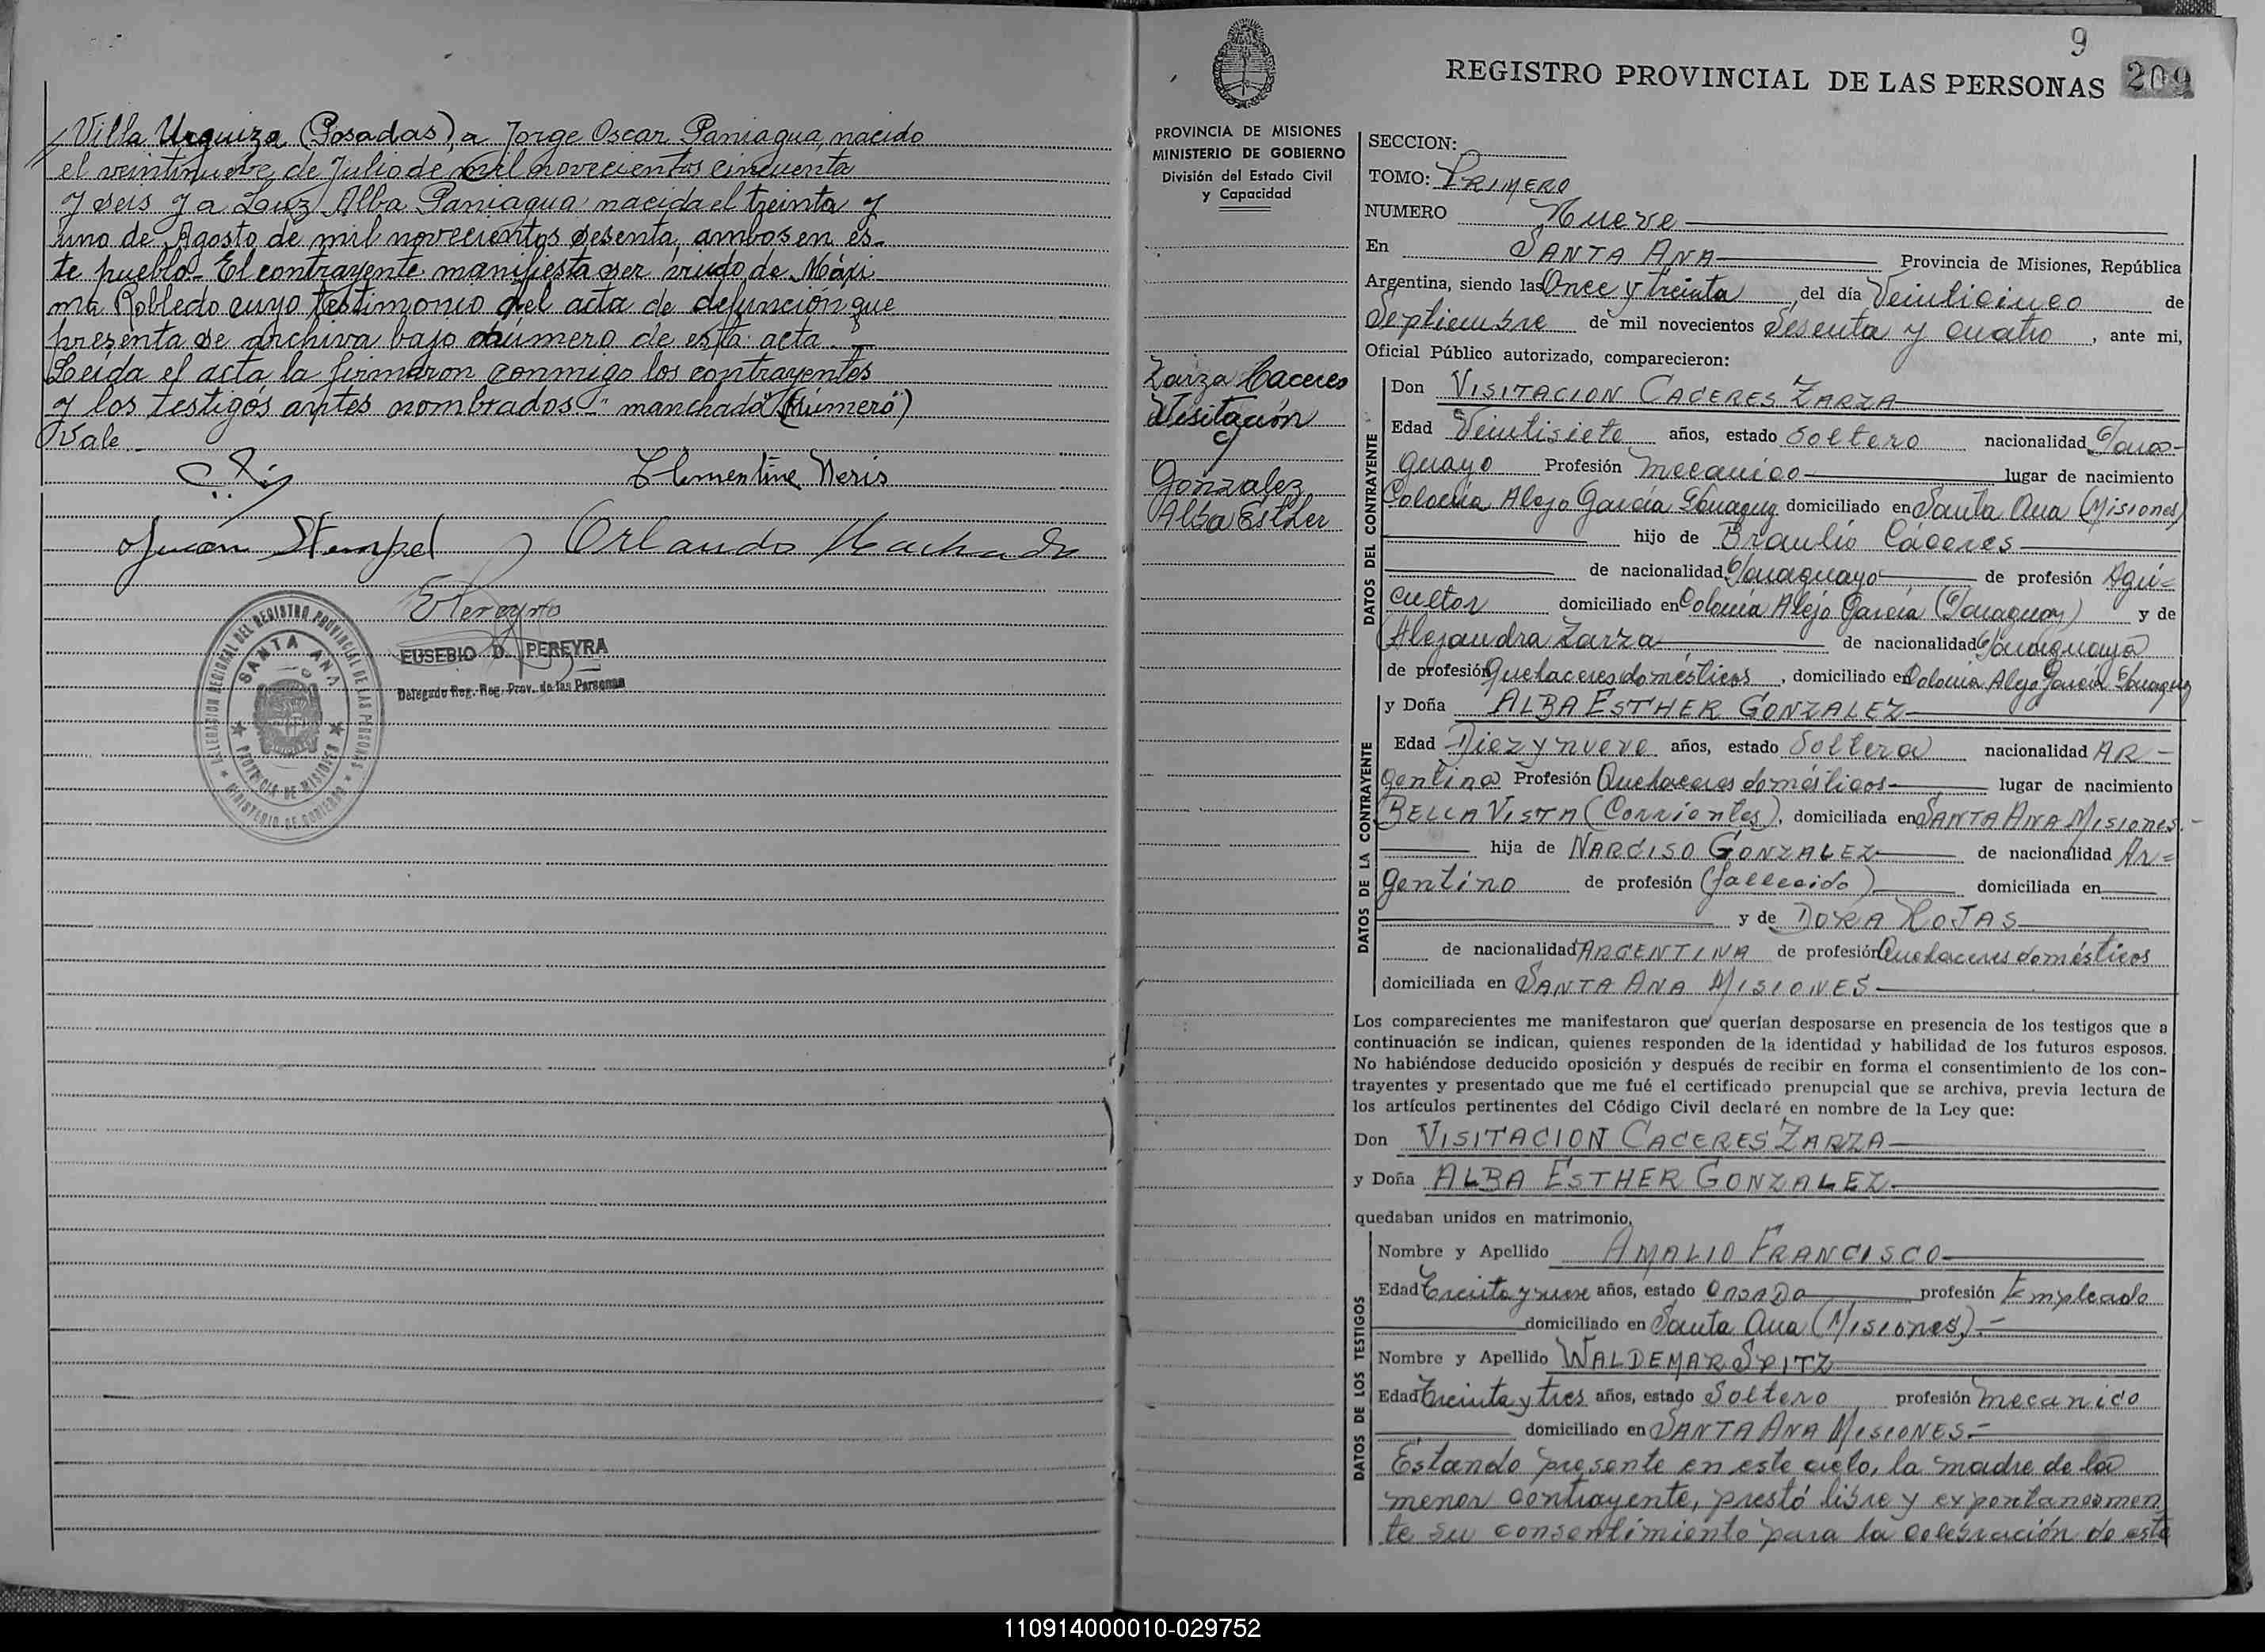 Villa Urquiza (Posadas), a Jorge Oscar Paniagua, nacido
el veintinueve de Julio de mil novecientos cincuenta
y seis y a Luz Alba Paniagua nacida el treinta y
uno de Agosto de mil novecientos sesenta, ambos en es-
te pueblo- El contrayente manifiesta ser viudo de Máxi-
ma Robledo cuyo testimonio del acta de defunción que
presenta se archiva bajo número de esta acta.-
Leída el acta la firmaron conmigo los contrayentes
y los testigos antes nombrados-"manchado" (número")
Vale
Clementine Neris
Juan Stempel Orlando Machado
EPereyra
EUSEBIO D. PEREYRA
Delegado Reg. Reg. Prov. de las Personas
DELEGACION REGIONAL DEL REGISTRO PROVINCIAL DE LAS PERSONAS
SANTA ANA
PROVINCIA DE MISIONES
MINISTERIO DE GOBIERNO
9
REGISTRO PROVINCIAL DE LAS PERSONAS 209
PROVINCIA DE MISIONES
MINISTERIO DE GOBIERNO
División del Estado Civil
y Capacidad
Zarza Caceres
Visitación
y
Gonzalez
Alba Esther
SECCION:
TOMO: PRIMERO
NUMERO Nueve
En SANTA ANA Provincia de Misiones, República
Argentina, siendo las Once y treinta del día Veinticinco de
Septiembre de mil novecientos Sesenta y cuatro, ante mi,
Oficial Público autorizado, comparecieron:
DATOS DEL CONTRAYENTE
Don VISITACION CACERES ZARZA
Edad Veintisiete años, estado Soltero nacionalidad Para-
guayo Profesión mecanico lugar de nacimiento
Colonia Alejo García Paraguay domiciliado en Santa Ana (Misiones)
hijo de Braulio Cáceres
de nacionalidad Paraguayo de profesión Agri-
cultor domiciliado en Colonia Alejo García (Paraguay) y de
Alejandra Zarza de nacionalidad Paraguaya
de profesión Quehaceres domésticos, domiciliado en Colonia Alejo García Paraguay
DATOS DE LA CONTRAYENTE
y Doña ALBA ESTHER GONZALEZ
Edad Diez y nueve años, estado Soltera nacionalidad AR-
gentina Profesión Quehaceres domésticos lugar de nacimiento
BELLA VISTA (Corrientes), domiciliada en SANTA ANA MISIONES.-
hija de NARCISO GONZALEZ de nacionalidad Ar-
gentino de profesión (fallecido) domiciliada en
y de DORA ROJAS
de nacionalidad ARGENTINA de profesión Quehaceres domésticos
domiciliada en SANTA ANA MISIONES
Los comparecientes me manifestaron que querían desposarse en presencia de los testigos que a
continuación se indican, quienes responden de la identidad y habilidad de los futuros esposos.
No habiéndose deducido oposición y después de recibir en forma el consentimiento de los con-
trayentes y presentado que me fué el certificado prenupcial que se archiva, previa lectura de
los artículos pertinentes del Código Civil declaré en nombre de la Ley que:
Don VISITACION CACERES ZARZA
y Doña ALBA ESTHER GONZALEZ
quedaban unidos en matrimonio,
DATOS DE LOS TESTIGOS
Nombre y Apellido AMALIO FRANCISCO
Edad Treinta y nueve años, estado casado profesión Empleado
domiciliado en Santa Ana (Misiones).-
Nombre y Apellido WALDEMAR SPITZ
Edad Treinta y tres años, estado Soltero profesión mecanico
domiciliado en SANTA ANA MISIONES-
Estando presente en este acto, la madre de la
menor contrayente, prestó libre y expontaneamen
te su consentimiento para la celebración de este
110914000010-029752